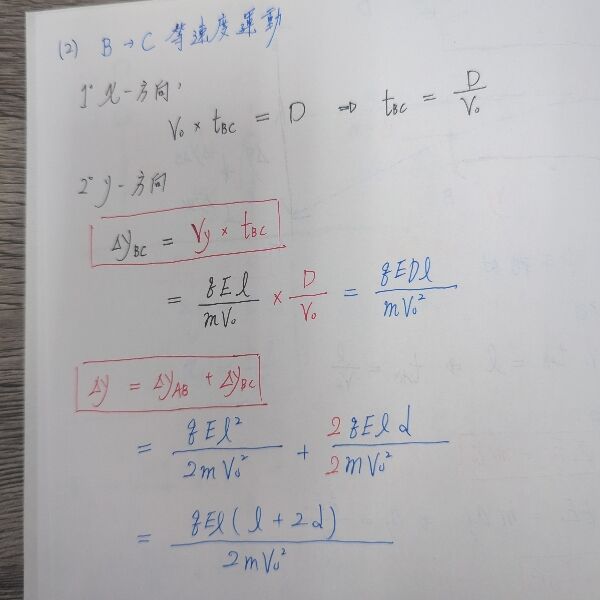 (2) B → C 等速度運動
1° x-方向:
V₀ × t_BC = D ⇒ t_BC = D/V₀
2° y-方向
Δy_BC = Vy × t_BC
= qEl/mV₀ × D/V₀ = qEDl/mV₀²
Δy = Δy_AB + Δy_BC
= qEl²/2mV₀² + 2qEld/2mV₀²
= qEl(l + 2d)/2mV₀²